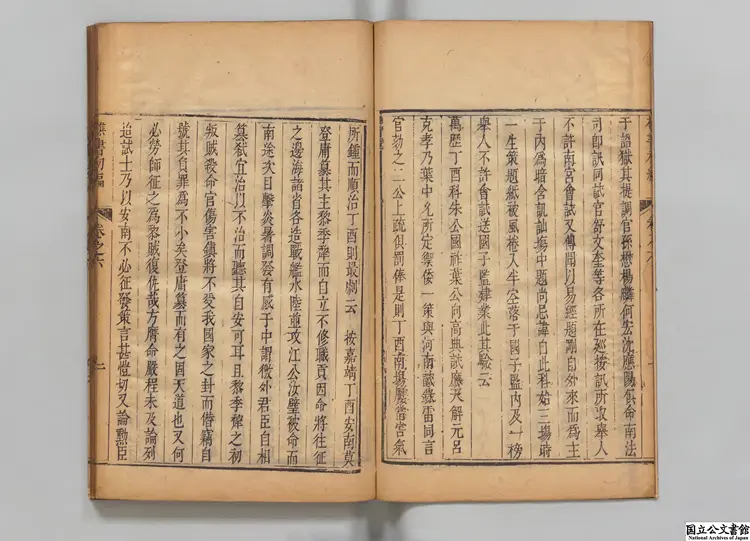 于詔獄其提調官孫懋楊麟何宏沈應陽俱命南法
司卽訊同試官舒文奎等各所在廵按訊所取舉人
不許南宮會試又傳聞以易經題剛自外來而為主
于内為暗含訊訕搆中題尚忌諱白此科始三塲時
一生策題紙被風捲入半空落于國子監内及一榜
舉人不許會試送國子監肄業此其驗云
萬歷丁酉科朱公國祚葉公向高典試應天解元呂
克孝乃葉中允所定禦倭一策與河南藏錄雷同言
官劾之二公上疏俱罰俸是則丁酉南塲屢當官氣
所鍾而順治丁酉則最劇云　按嘉靖丁酉安南莫
登庸纂其主黎季犛而自立不修職貢因命將往征
之邊海諸省各造戰艦水陸並攻江公汝璧被命而
南途次目擊炎暑調發有感于中謂徼外君臣自相
篡弑宜治以不治而聽其自安可耳且黎季犛之初
叛賊殺命官傷害鎮將不受我國家之封而僭竊自
號其自罪為不小矣登庸篡而有之固天道也又何
必勞師征之為黎賊復仇哉方膺命嚴程未及論列
迨試士乃以安南不必征發策言甚愷切又論勲臣
卷之六
二
国立公文書館
National Archives of Japan